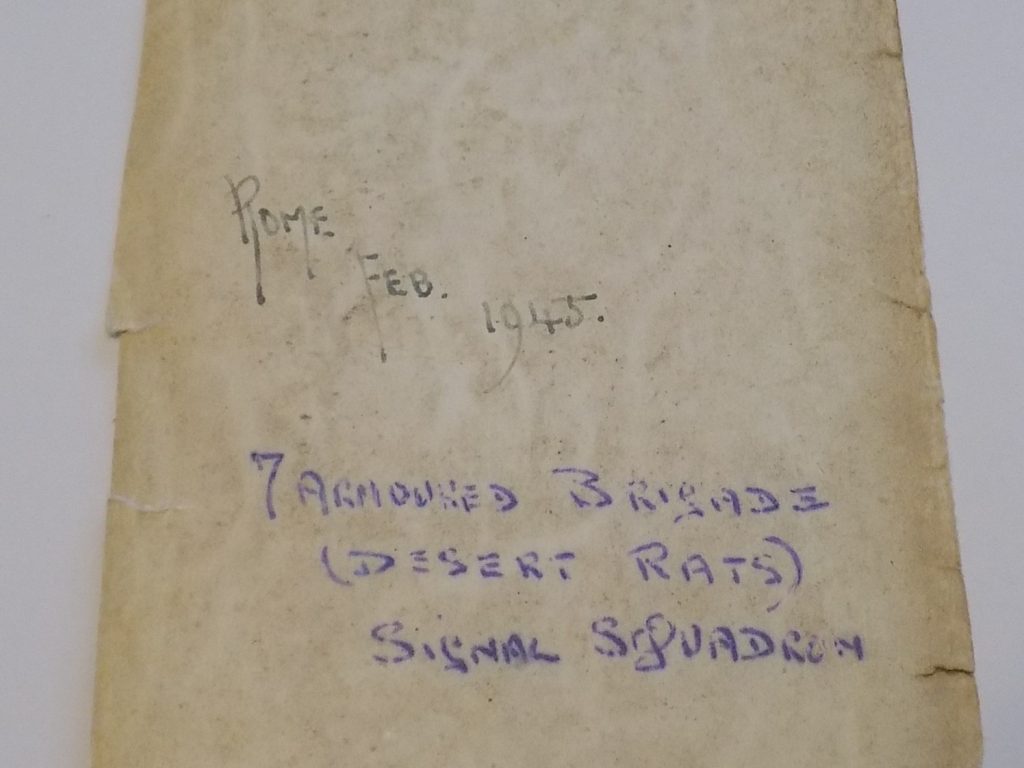 ROME
FEB. 1945.
7 ARMOURED BRIGADE
(DESERT RATS)
SIGNAL SQUADRON